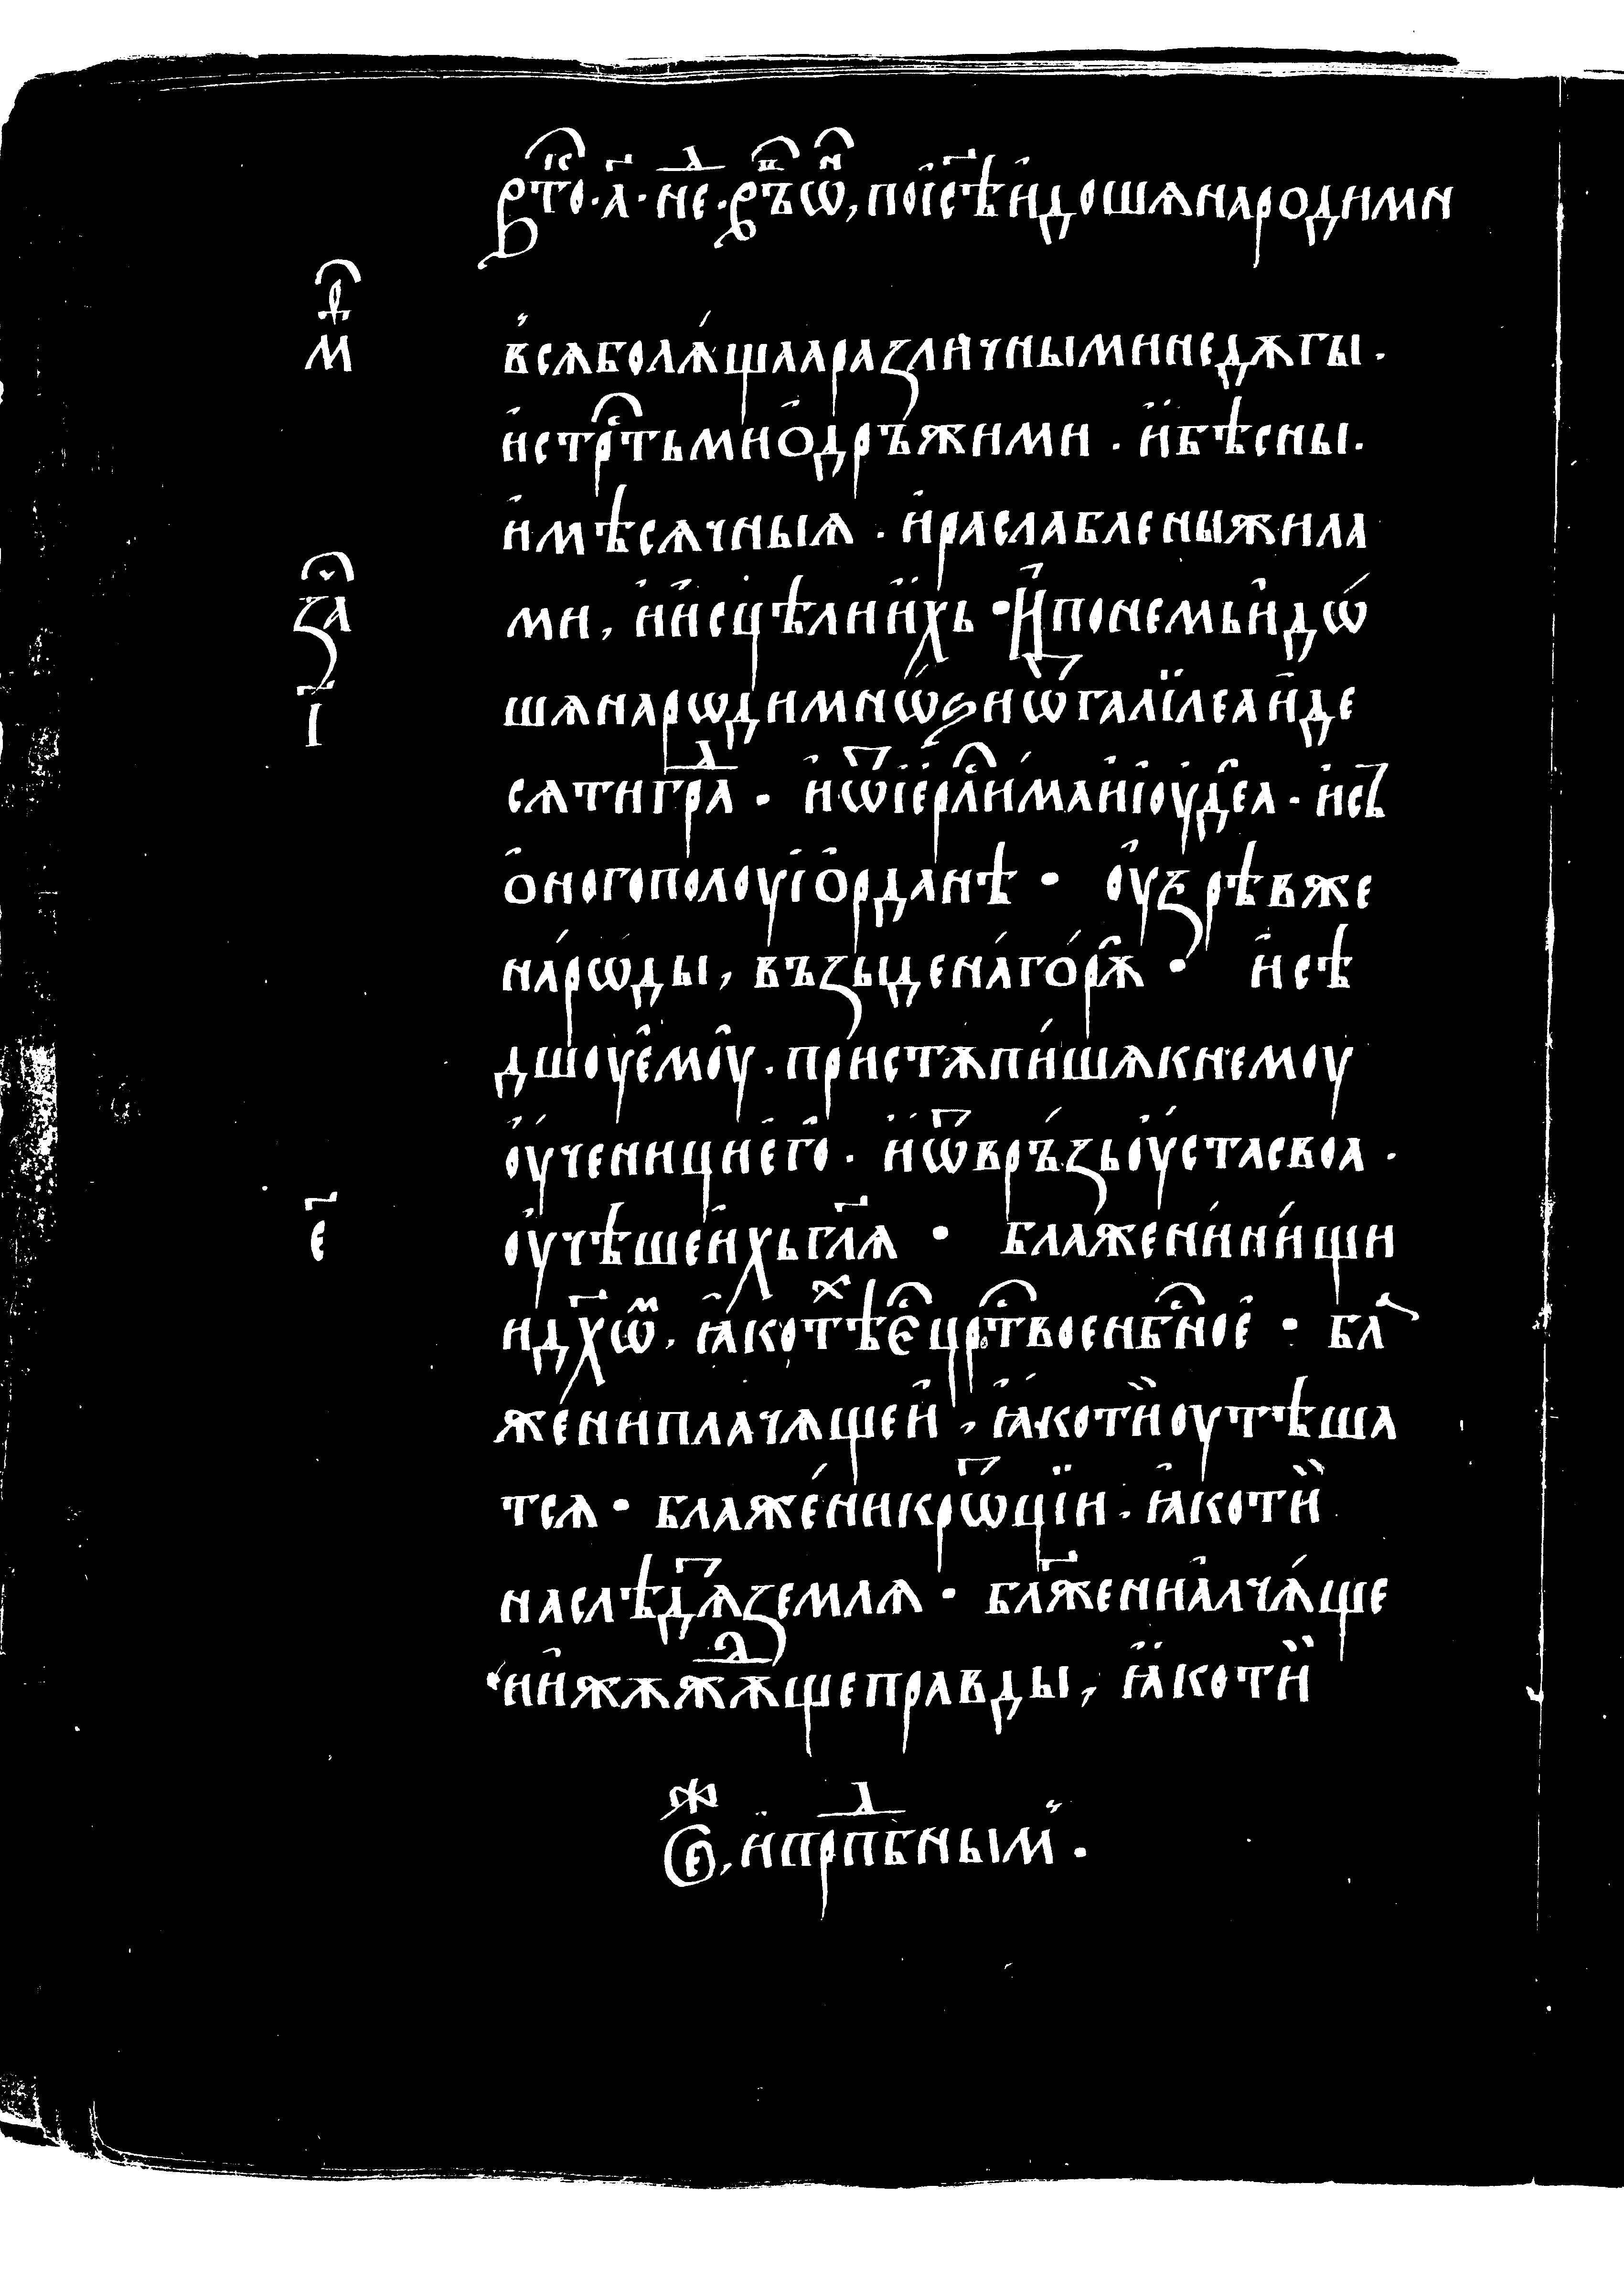 рⷭ҇тѡ · а҃ · неⷣ · въⷪ҇ , по іс҃ѣ идошѧ народи мн
мⷴ҇
всѧ болѧ́щаа различными недѫгы .
и҆ стрⷭ҇тьми ѻ҆дръжими . и҆ бѣсны .
и҆ мѣсѧчныѧ . и҆ раслаблены жила
заⷱ҇
ми , и҆ и҆сцѣли и҆хь · И҆ по немь и҆дѡ́
і҃
шѧ нарѡди мнѡ́ѕи ѿ галїлеа и҆ де
сѧти граⷣ · и҆ ѿ і҆ерⷭ҇лима и҆ і҆оудеа · и҆ съ
ѻ҆ного полоу і҆ѻ҆рданѣ · оу҆зрѣв же
на́рѡды , възыде на́ го́рѫ · и҆ сѣ
дшоу є҆моу҆ · пристѫпи́шѧ к немоу
оу҆ченици є҆го҆ · и҆ ѿвръ́зь оу҆ста своа ·
є҃
оу҆чѣше и҆хь гл҃ѧ · блажени́ ни́щи
и дх҃ѡⷨ , ꙗ҆ко тѣⷯ є҆ⷭ҇ црⷭ҇тво є нбⷭ҇ноє҆ · бла
же́ни плачѧщеи҆ , ꙗ҆ко ти҆ оутѣша
тсѧ · блаже́ни крѡтції , ꙗ҆ко ти҆
наслѣдѧⷮ землѧ · бл҃жени а҆лчѧ́ще
и и҆ жѫжⷣѫще правды , ꙗ҆ко ти҆
Сеⷤ , и҆ прⷣпбным .